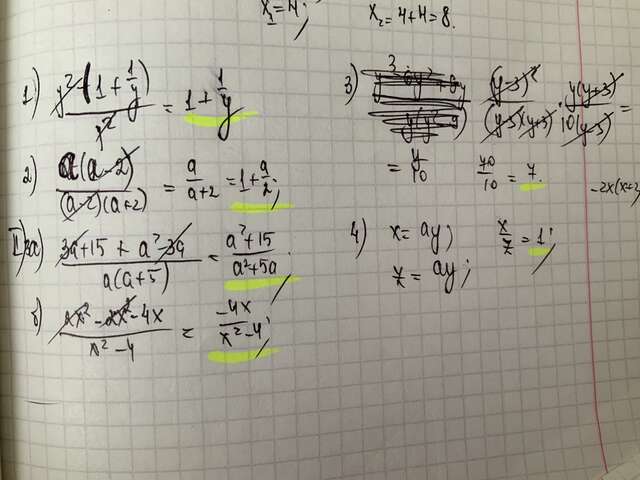 x₂ = 4; x₂ = 4+4 = 8.
1) y²(1 + 1/y) / y² = 1 + 1/y
2) a(a-2) / (a-2)(a+2) = a/(a+2) = 1 + a/2;
3a) 3a+15 + a²-3a / a(a+5) = a²+15 / a²+5a;
б) 2x² - 2x² - 4x / x² - 4 = -4x / x² - 4;
3) (y-3)² / (y-3)(y+3) · y(y+3) / 10(y-3) =
= y/10 70/10 = 7.
-2x(x+2
4) x = ay; x/z = 1;
z = ay;